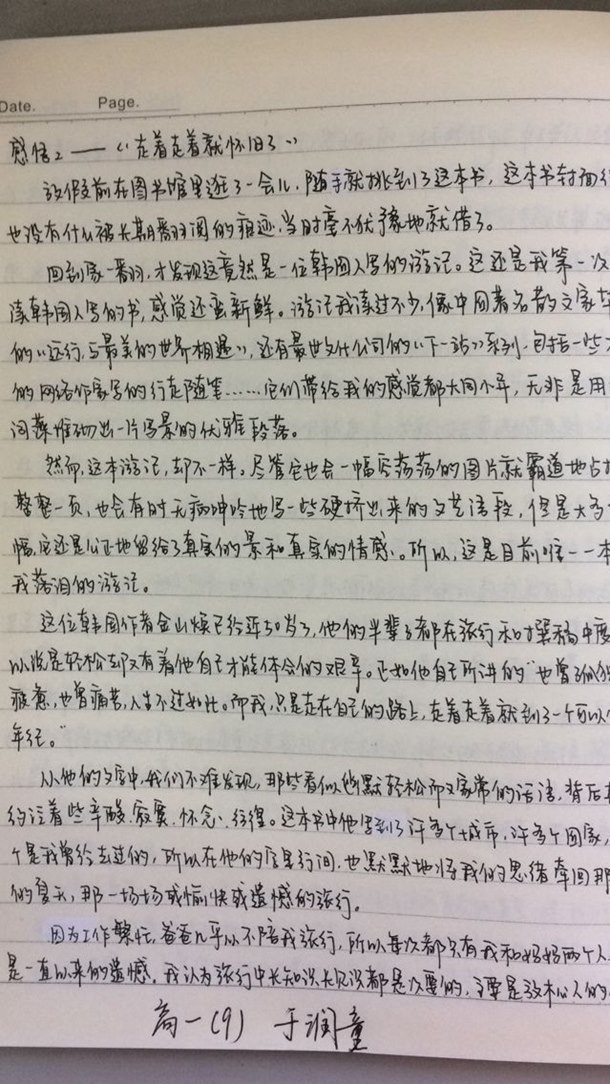 Date. Page.
感悟2——《走着走着就怀旧了》
放假前在图书馆里逛了一会儿,随手就挑到了这本书,这本书封面
也没有什么被长期翻阅的痕迹,当时毫不犹豫地就借了。
回到家一翻,才发现这竟然是一位韩国人写的游记。这还是我第一次
读韩国人写的书,感觉还蛮新鲜。游记我读过不少,像中国著名散文家
的《远行,与最美的世界相遇》,还有最世文化公司的《下一站》系列,包括一些
的网络作家写的行走随笔……它们带给我的感觉都大同小异,无非是用
词藻堆砌出一片写景的优雅段落。
然而,这本游记,却不一样。尽管它也会一幅空荡荡的图片就霸道地占
整整一页,也会有时无病呻吟地写一些硬挤出来的文艺语段,但是大多
幅,它还是公正地留给了真实的景和真实的情感。所以,这是目前唯一一本
我落泪的游记。
这位韩国作者金山焕已经近50岁了,他的半辈子都在旅行和撰稿中度
以说是轻松却又有着他自己才能体会的艰辛。正如他自己所讲的“也曾孤独
疲惫,也曾痛苦,人生不过如此。而我,只是走在自己的路上,走着走着就到了一个可以
年纪。”
从他的文字中,我们不难发现,那些看似幽默轻松而又家常的话语,背后
约泛着些辛酸、寂寞、怀念、彷徨。这本书中他写到了许多个城市,许多个国家,
个是我曾经去过的,所以在他的字里行间,也默默地将我的思绪牵回那
的夏天,那一场场或愉快或遗憾的旅行。
因为工作繁忙,爸爸几乎从不陪我旅行,所以每次都只有我和妈妈两个人
是一直以来的遗憾。我认为旅行中长知识长见识都是次要的,主要是放松心人的
高一(9) 于润童